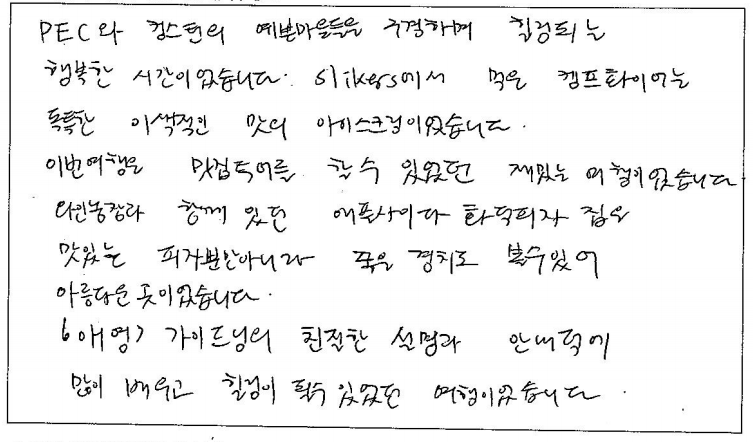 PEC와 킹스턴의 예쁜마을들을 구경하며 힐링되는
행복한 시간이었습니다. slikers에서 먹은 캠프화이어는
독특한 이색적인 맛의 아이스크림이었습니다.
이번여행은 맛집투어를 할 수 있었던 재밌는 여행이었습니다
와인농장과 함께 있던 애플사이다 화덕피자 집은
맛있는 피자뿐만아니라 좋은 경치도 볼수있어
아름다운 곳이었습니다.
가이드님의 친절한 설명과 안내덕에
많이 배우고 힐링이 될수 있었던 여행이었습니다.